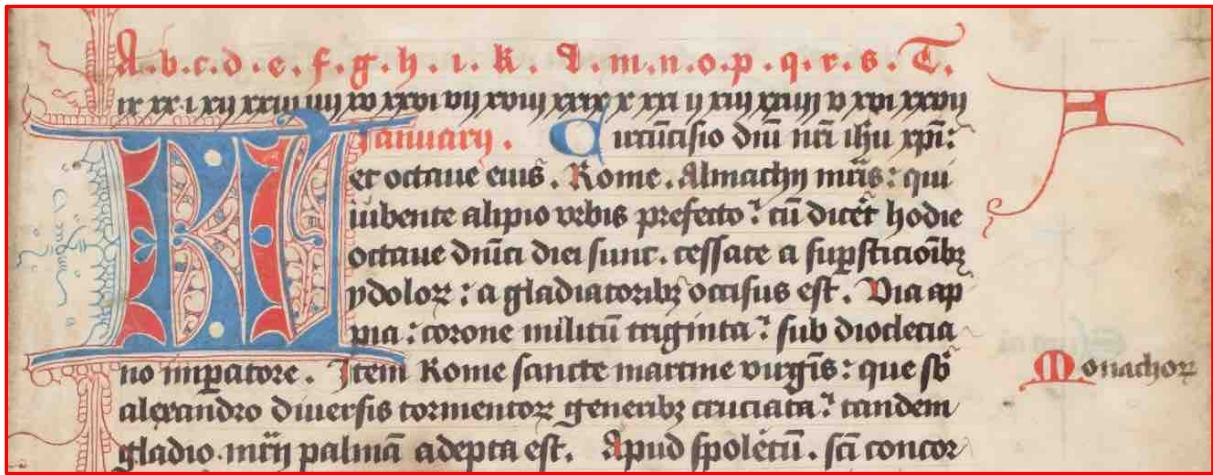 A.b.c.d.e.f.g.h.i.k.l.m.n.o.p.q.r.s.T.
ix xx i xij xxiij iiij xv xxvi vij xviij xxix x xxi ij xiij xxiiij v xvi xxvij
A
KL Januarij. Circūcisio dn̄i nr̄i ih̄u xp̄i:
et octaue eius. Rome. Almachij mr̄is: qui
iubente alipio vrbis prefecto: cū dicēt hodie
octaue dn̄ici diei sunt. cessate a suꝑsticioībꝫ
ydoloꝝ: a gladiatoribꝫ occisus est. Via ap
pia: corone militū triginta: sub dioclecia
no imꝑatore. Item Rome sancte martine virgīs: que sb̄
Monachoꝝ
alexandro diuersis tormentoꝝ generibꝫ cruciata: tandem
gladio mr̄ij palmā adepta est. Apud spoletū. sc̄i concor